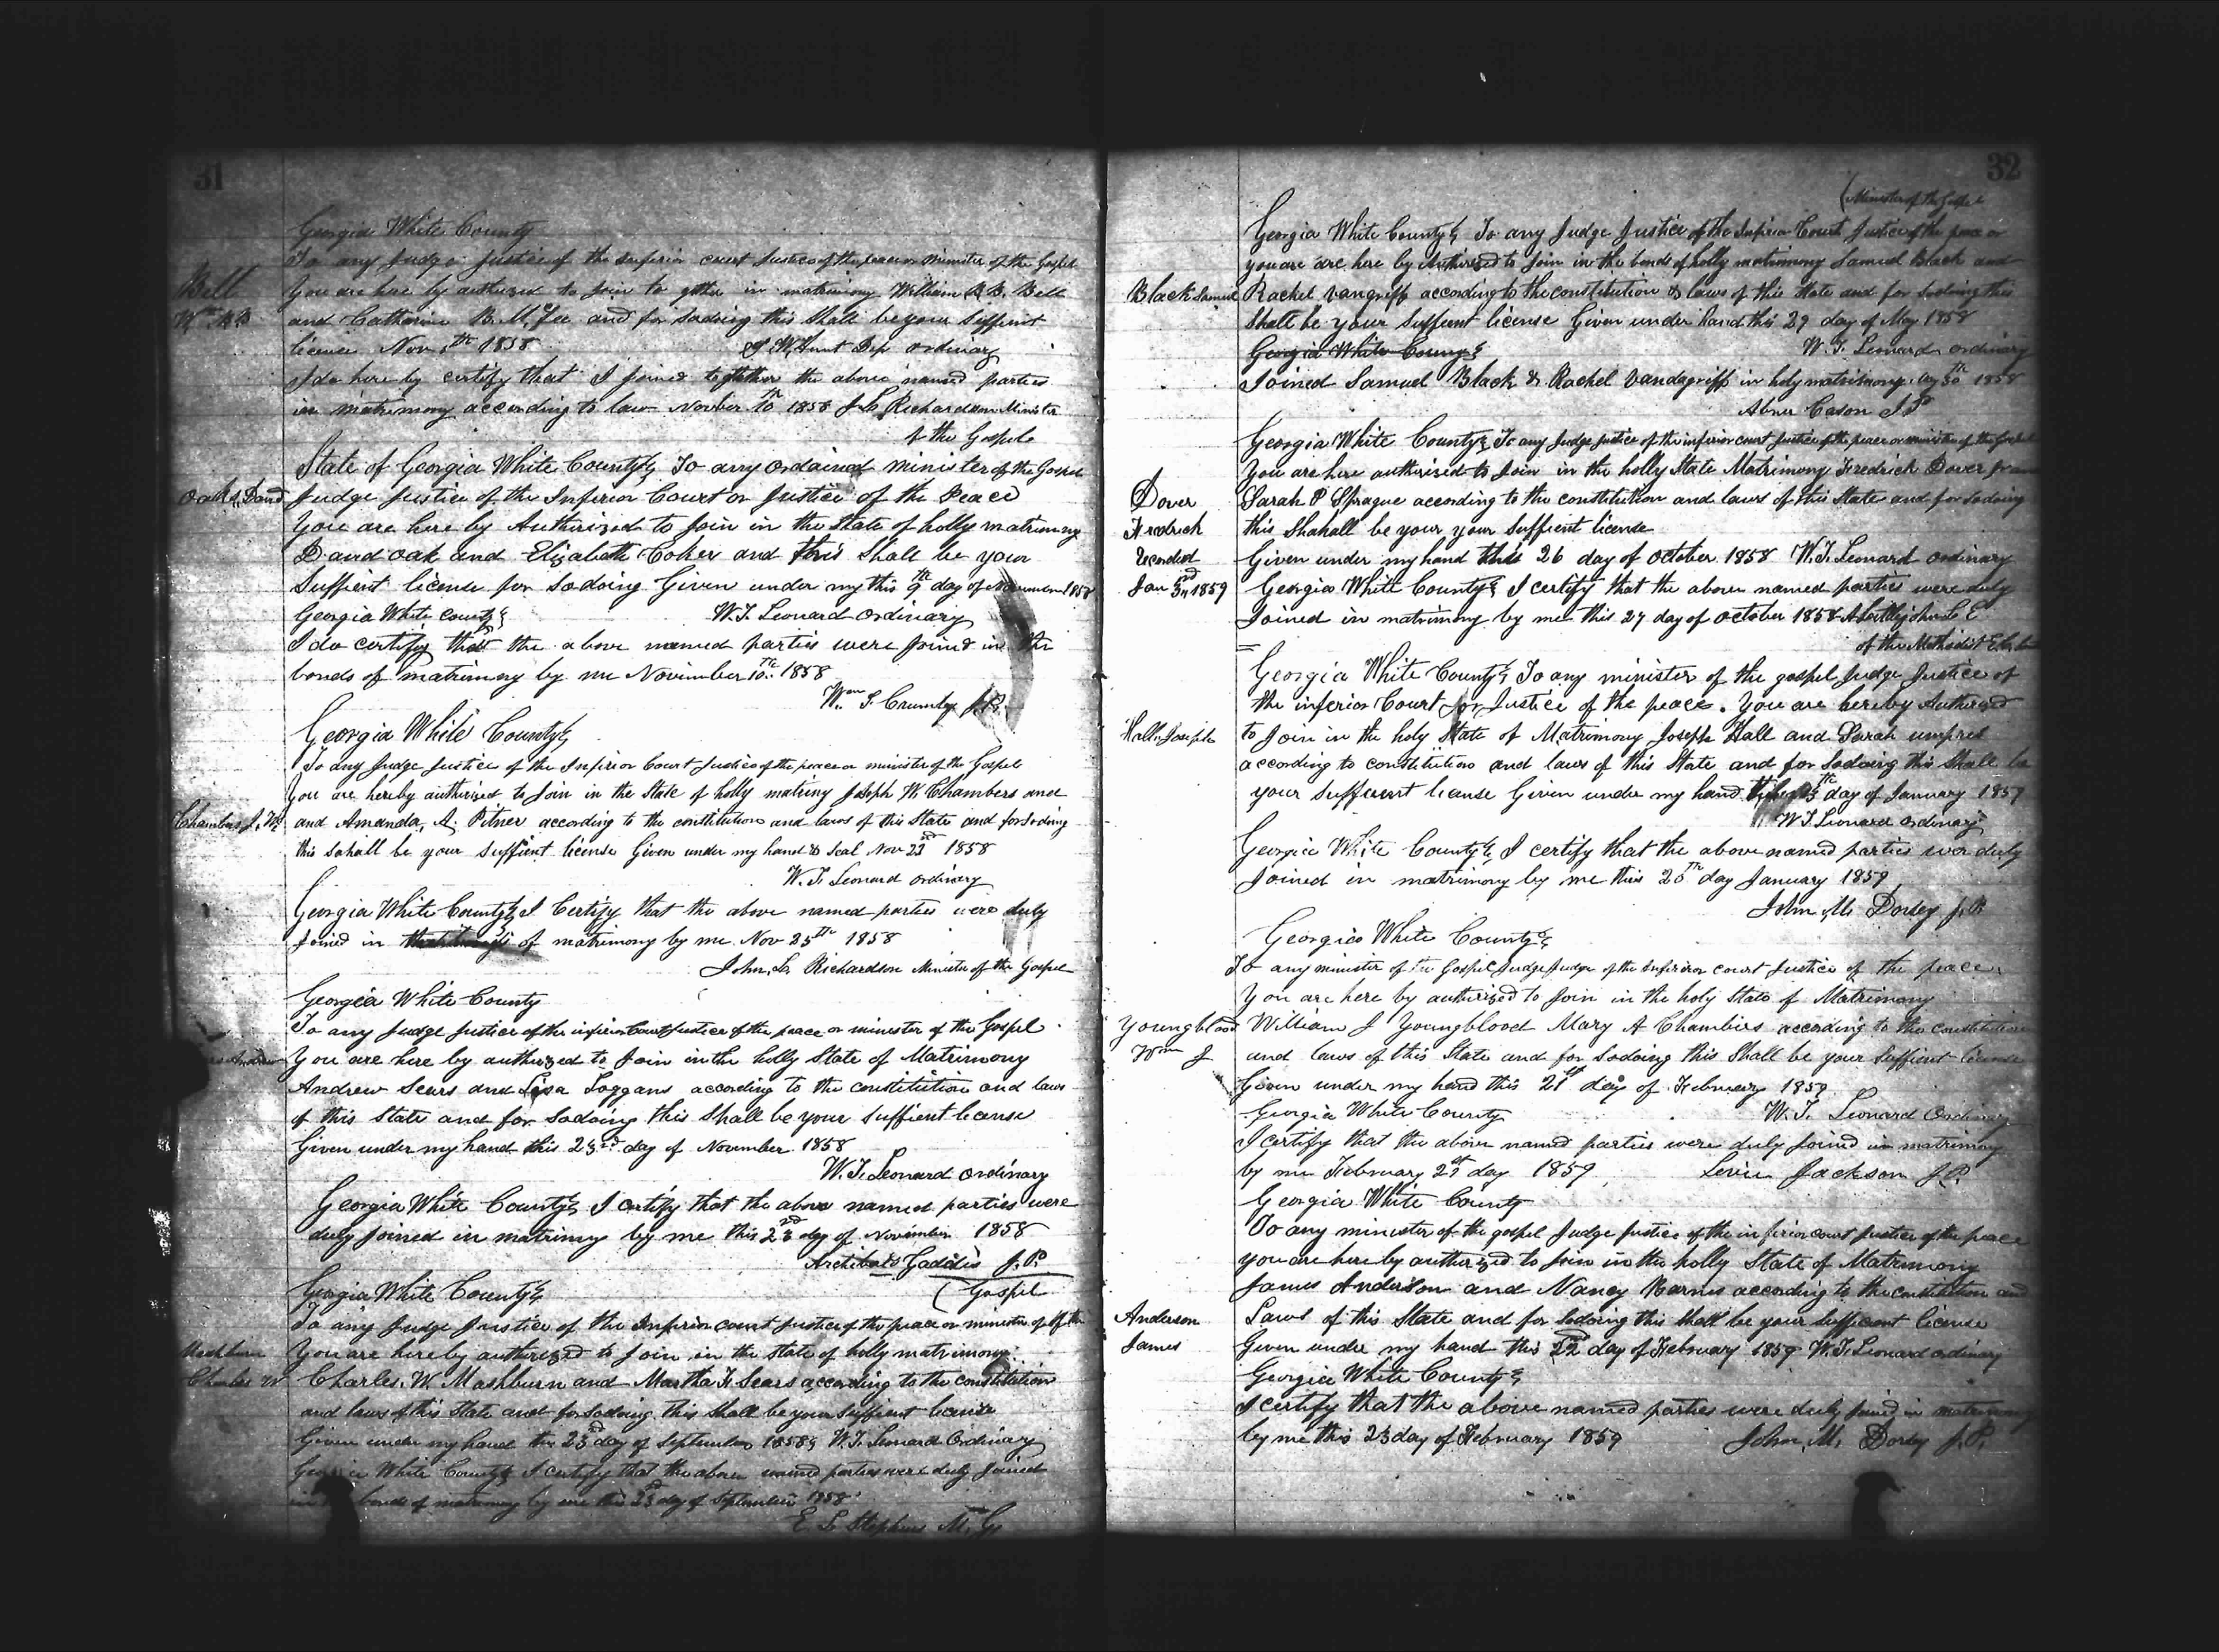 31
Georgia White County
To any Judge Justice of the inferior court Justice of the peace or minister of the Gospel
Bell
You are here by authorized to join to gether in matrimony William B. Bell
Wm
and Catharine and for sodoing this Shall be your Suffient
licence Nov 1858 Hunt Dep ordinary
I do here by certify that I joined together the above named parties
in matrimony according to law November 10th 1858 J L Richardson Minister
of the Gospel
State of Georgia White County To any ordained minister of the Gospel
Oaks, Davd
Judge Justice of the Inferior Court or Justice of the Peace
You are here by Authorized to Join in the State of holly matrimony
David Oak and Elizabeth Coker and this Shall be your
Suffient license for Sodoing Given under my this 9th day of 1858
Georgia White county W. T. Leonard Ordinary
I do certify that the above named parties were joined in the
bonds of matrimony by me November 10th 1858
Wm Crumley J.P.
Georgia White County
To any Judge Justice of the Inferior Court Justice of the peace or minister of the Gospel
You are hereby authorized to Join in the State of holly Joseph W. Chambers and
Chambers J. W.
and Amanda A. Pitner according to the constitution and laws of this State and for Sodoing
this sahall be your suffient license Given under my hand & Seal Nov 23rd 1858
W. T. Leonard ordinary
Georgia White County I Certify that the above named parties were duly
Joined in of matrimony by me Nov 25th 1858
John L. Richardson Minister of the Gospel
Georgia White County
To any Judge Justice of the inferior Court Justice of the peace or minister of the Gospel
Andrew
You are here by authorized to Join in the holly State of Matrimony
Andrew Sears and Loggans according to the constitution and laws
of this State and for Sodoing this Shall be your Suffient license
Given under my hand this 23rd day of November 1858
W. T. Leonard ordinary
Georgia White County I certify that the above named parties were
duly joined in matrimony by me this 23rd day of November 1858
Archibald Gaddis J.P.
Georgia White County (Gospel
To any Judge Justice of the Inferior court Justice of the peace or minister of the
Mashburn
You are hereby authorized to Join in the State of holly matrimony
Charles W.
Charles W. Mashburn and Martha Sears according to the constitution
and laws of this State and for sodoing this Shall be your Suffient license
Given under my hand the 23rd day of September 1858 W. T. Leonard Ordinary
Georgia White County I certify that the above named parties were duly Joined
in bonds of matrimony by me the 23rd day of September 1858
E L Stephens M. G.
32
(Minister of the Gospel
Georgia White County To any Judge Justice of the Inferior Court Justice of the peace or
you are are here by Authorized to Join in the bonds of holly matrimony Samuel Black and
Black Samuel
Rachel Vangriff according to the constitution & laws of this State and for Sodoing this
Shall be your Suffient license Given under hand this 29 day of May 1858
Georgia White County W. T. Leonard ordinary
Joined Samuel Black & Rachel Vandagriff in holy matrimony May 30th 1858
Abner Cason J P
Georgia White County To any Judge Justice of the inferior court Justice of the peace or minister of the Gospel
You are here authorised to Join in the holly State Matrimony Fredrich Dover
Dover
Sarah P Sprague according to the constitution and laws of this State and for Sodoing
Fredrich
this Shahall be your your Suffient license
Recorded
Given under my hand this 26 day of October 1858 W. T. Leonard ordinary
Jan 3rd 1859
Georgia White County I certify that the above named parties were duly
Joined in matrimony by me this 27 day of October 1858
of the Methodist
Georgia White County To any minister of the gospel Judge Justice of
the inferior Court Justice of the peace. You are hereby Authorized
Hall Joseph
to Join in the holy State of Matrimony Joseph Hall and Sarah umpres
according to constitution and laws of this State and for Sodoing this Shall be
your Suffient license Given under my hand day of January 1859
W T Leonard Ordinary
Georgia White County I certify that the above named parties wer duly
Joined in matrimony by me this 20th day January 1859
John M. Dorsey J.P.
Georgia White County
To any minister of the Gospel Judge Judge of the Inferior court Justice of the peace
You are here by authorized to Join in the holy State of Matrimony
Youngblood
William J Youngblood Mary A Chambers according to the constitution
Wm J
and laws of this State and for Sodoing this Shall be your Suffient license
Given under my hand this 21st day of February 1859
Georgia White County W. T. Leonard Ordinary
I certify that the above named parties were duly Joined in matrimony
by me February 21st day 1859 Jackson J.P.
Georgia White County
To any minister of the gospel Judge Justice of the inferior court Justice of the peace
you are here by authorized to Join in the holly State of Matrimony
James Anderson and Nancy Barnes according to the constitution and
Anderson
Laws of this State and for Sodoing this shall be your Suffient license
James
Given under my hand this 22nd day of February 1859 W. T. Leonard ordinary
Georgia White County
I certify that the above named parties were duly joined in matrimony
by me this 23 day of February 1859 John M. Dorsey J.P.